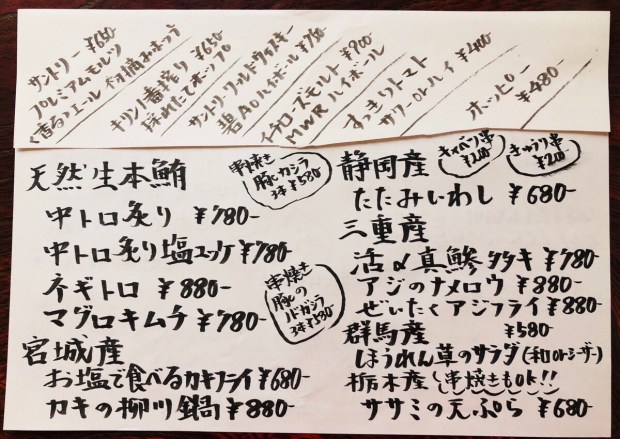 サントリー ¥650
プレミアムモルツ
〈香る〉エール 初摘みホップ
キリン一番搾り ¥650
採れたてホップ
サントリーワールドウィスキー
碧Aoハイボール ¥750
イチローズモルト ¥900
MWRハイボール
すっきりトマト
サワーorハイ ¥400
ホッピー
¥480-
天然生本鮪
中トロ炙り ¥780-
中トロ炙り塩ユッケ ¥780-
ネギトロ ¥880-
マグロキムチ ¥780-
宮城産
お塩で食べるカキフライ ¥680-
カキの柳川鍋 ¥880-
串焼き
豚カシラ
3本¥580-
串焼き
豚の
ノドガシラ
3本¥580-
静岡産
キャベツ串
¥200-
きゅうり串
¥200-
たたみいわし ¥680-
三重産
活〆真鯵タタキ ¥780-
アジのナメロウ ¥880-
ぜいたくアジフライ ¥880-
群馬産 ¥580-
ほうれん草のサラダ(和orシーザー)
栃木産 串焼きもok!!
ササミの天ぷら ¥680-